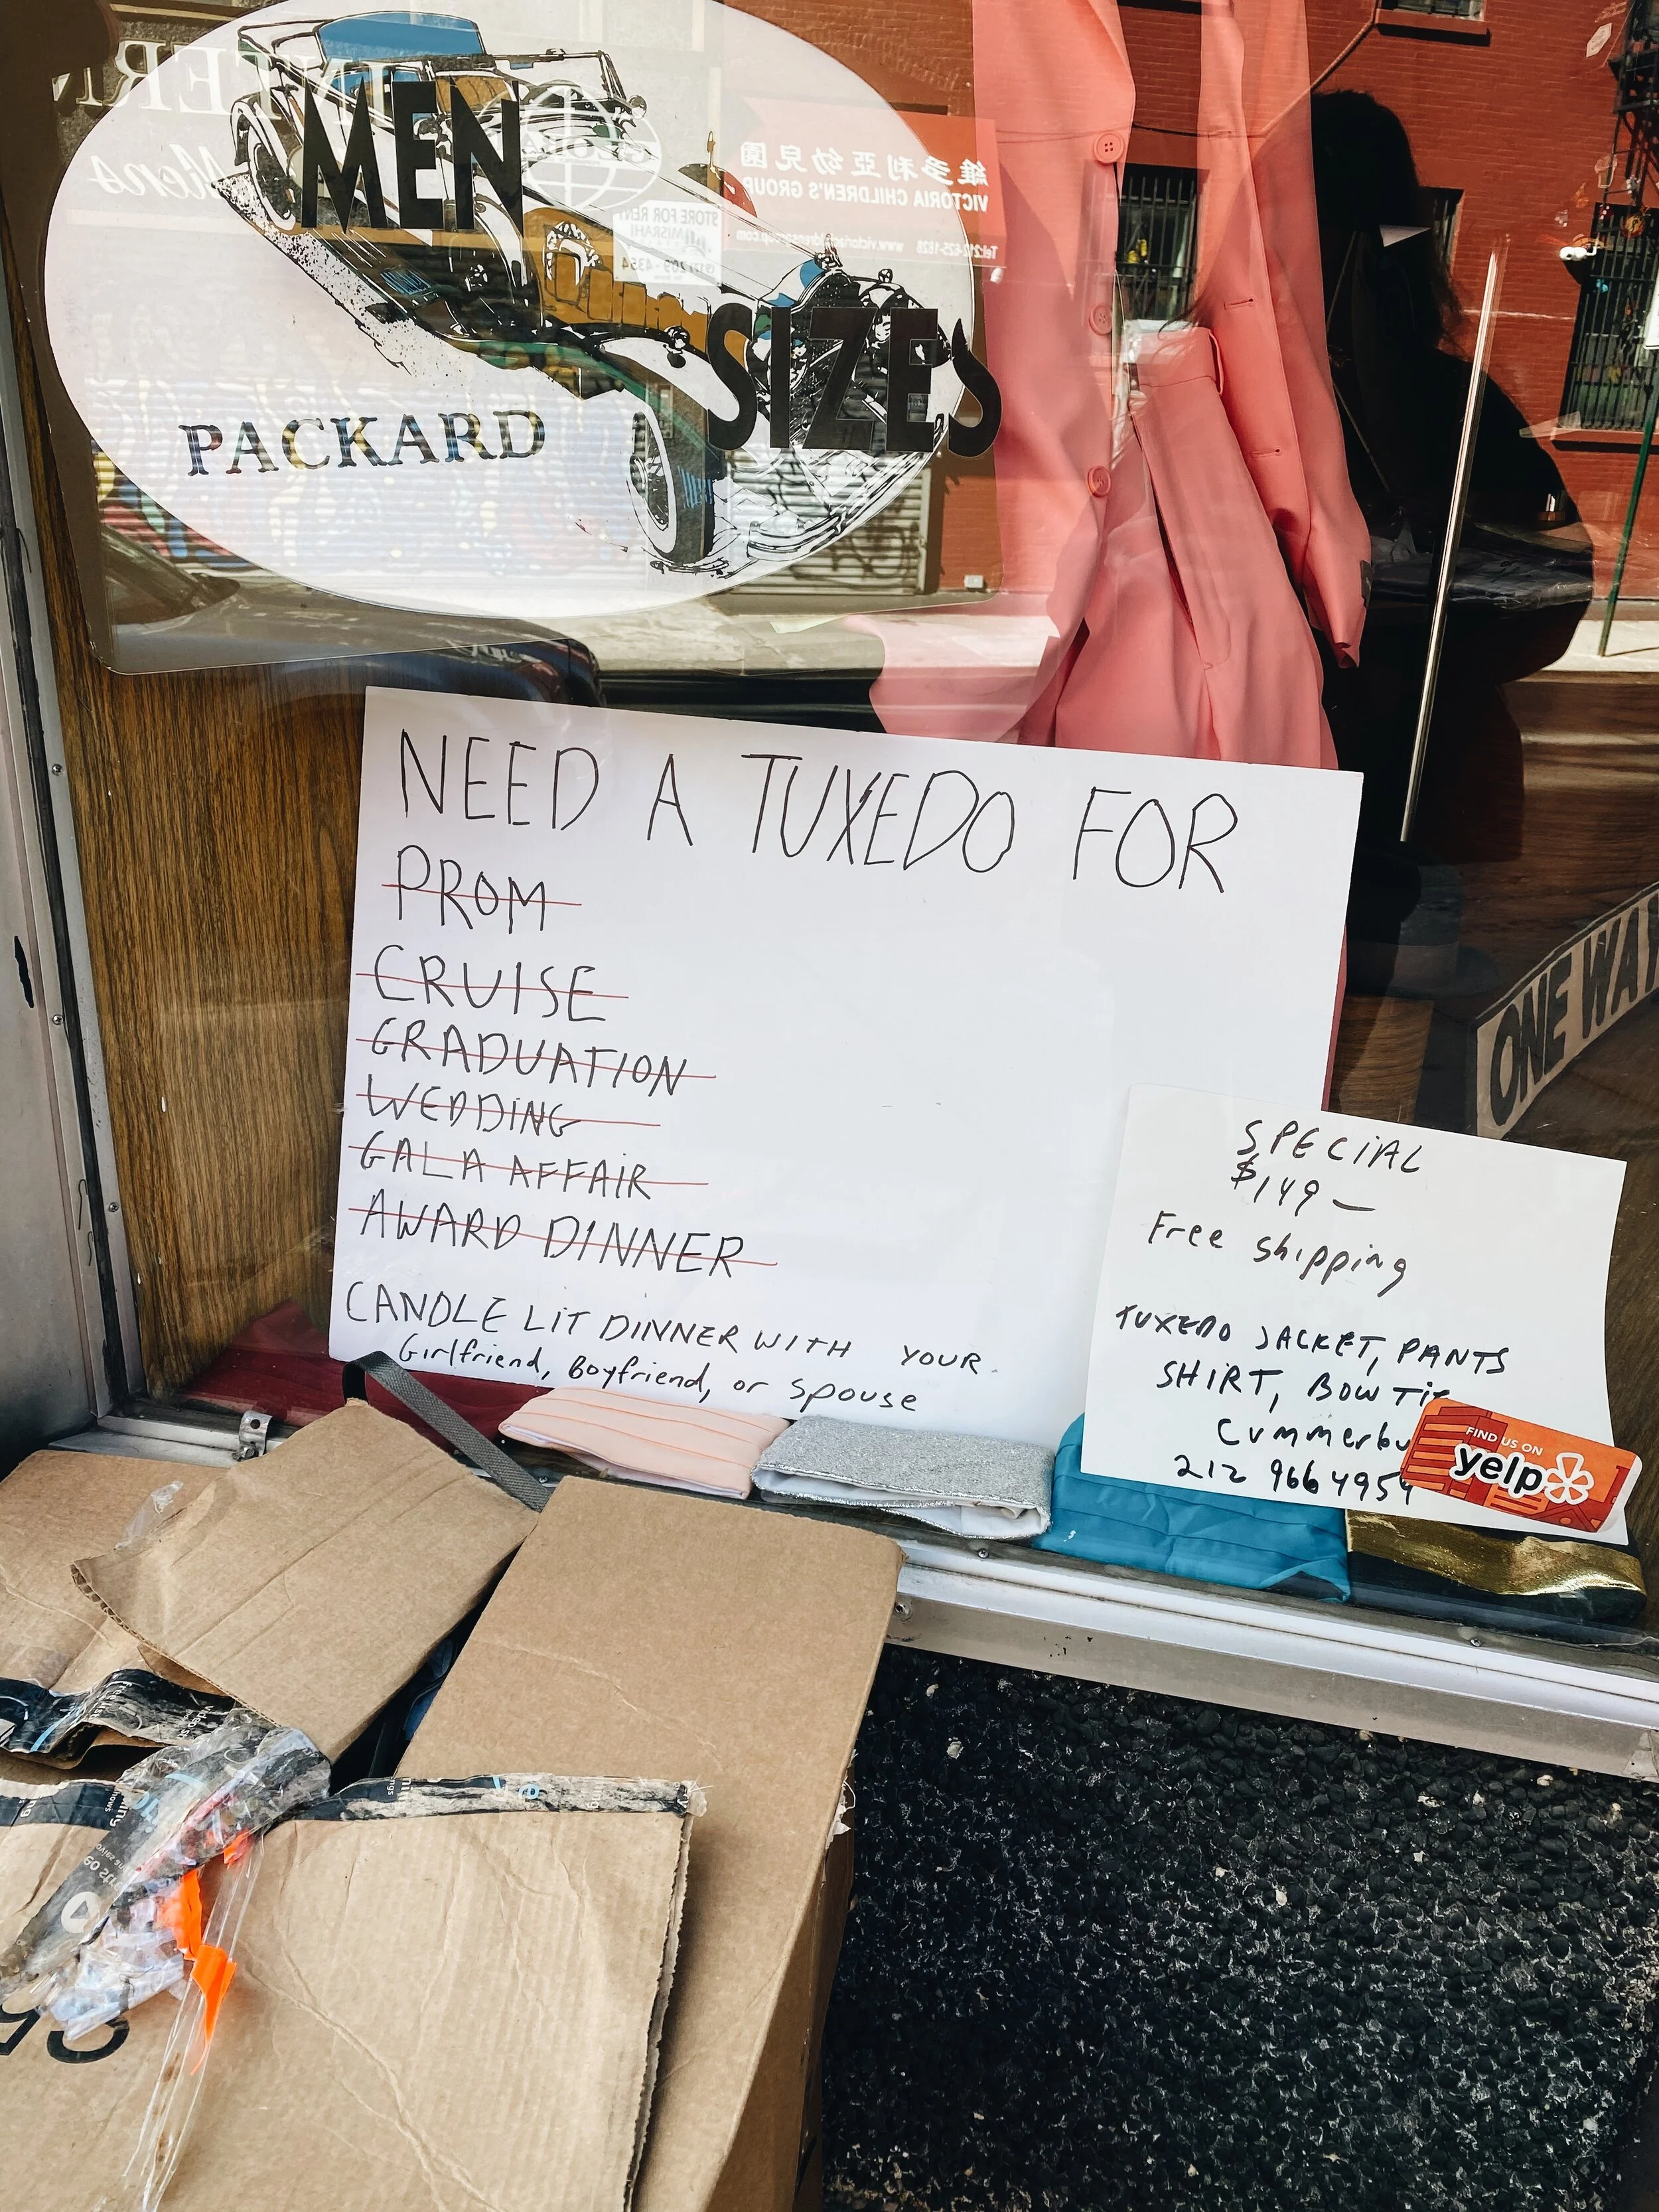 MEN
SIZES
PACKARD
INTERN
Mens
GLOBAL
維多利亞幼兒園
VICTORIA CHILDREN'S GROUP
STORE FOR RENT
MISRAHI
NEED A TUXEDO FOR
PROM
CRUISE
GRADUATION
WEDDING
GALA AFFAIR
AWARD DINNER
CANDLE LIT DINNER WITH YOUR
Girlfriend, Boyfriend, or spouse
SPECIAL
$149—
Free shipping
TUXEDO JACKET, PANTS
SHIRT, BOW TIE
Cummerbu
212 966 4954
FIND US ON
yelp
ONE WAY